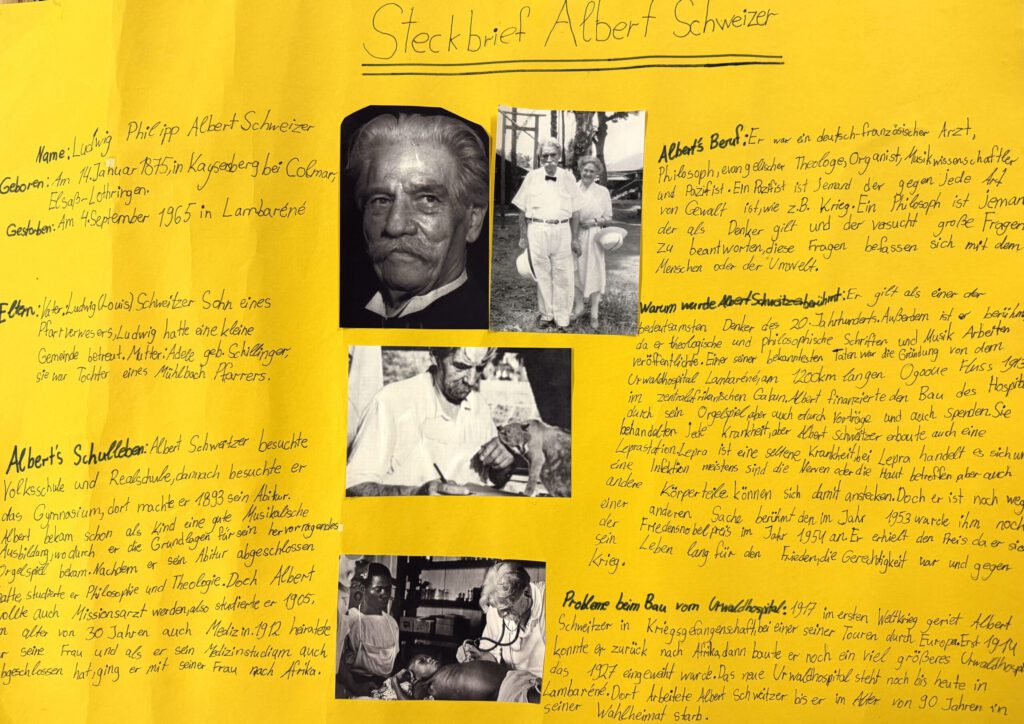 Steckbrief Albert Schweizer
Name: Ludwig Philipp Albert Schweizer
Geboren: Am 14 Januar 1875, in Kaysenberg bei Colmar,
Elsaß-Lothringen.
Gestorben: Am 4 September 1965 in Lambaréné
Eltern: Vater: Ludwig (Louis) Schweitzer Sohn eines
Pfarrverwesers, Ludwig hatte eine kleine
Gemeinde betreut. Mutter: Adele geb. Schillinger,
sie war Tochter eines Mühlbach Pfarrers.
Albert's Schulleben: Albert Schweitzer besuchte
Volksschule und Realschule, darnach besuchte er
das Gymnasium, dort machte er 1893 sein Abitur.
Albert bekam schon als kind eine gute Musikalische
Ausbildung, wodurch er die Grundlagen für sein hervorragendes
Orgelspiel bekam. Nachdem er sein Abitur abgeschlossen
hatte, studierte er Philosophie und Theologie. Doch Albert
wollte auch Missionsarzt werden, also studierte er 1905,
im alter von 30 Jahren auch Medizin. 1912 heiratete
er seine Frau und als er sein Medizinstudium auch
abgeschlossen hat, ging er mit seiner Frau nach Afrika.
Albert's Beruf: Er war ein deutsch-französischer Arzt,
Philosoph, evangelischer Theologe, Organist, Musikwissenschaftler
und Pazifist. Ein Pazifist ist Jemand der gegen jede Art
von Gewalt ist, wie z.B. Krieg. Ein Philosoph ist Jemand
der als Denker gilt und der versucht große Fragen
zu beantworten, diese Fragen befassen sich mit dem
Menschen oder der Umwelt.
Warum wurde Albert Schweitzer berühmt: Er gilt als einer der
bedeutsamsten Denker des 20. Jahrhunderts. Außerdem ist er berühmt,
da er theologische und philosophische Schriften und Musik Arbeiten
veröffentlichte. Einer seiner bekanntesten Taten war die Gründung von dem
Urwaldhospital Lambaréné, am 1200km langen Ogooue Fluss 1913
im zentralafrikanischen Gabun. Albert finanzierte den Bau des Hospitals
durch sein Orgelspiel, aber auch durch Vorträge und auch Spenden. Sie
behandelten jede Krankheit, aber Albert Schweitzer erbaute auch eine
Leprastation. Lepra ist eine seltene Krankheit, bei Lepra handelt es sich um
eine Infektion meistens sind die Nerven oder die Haut betroffen, aber auch
andere Körperteile können sich damit anstecken. Doch er ist noch wegen
einer anderen Sache berühmt, den im Jahr 1953 wurde ihm noch
der Friedensnobelpreis im Jahr 1954 an. Er erhielt den Preis da er sich
sein Leben lang für den Frieden, die Gerechtigkeit war und gegen
Krieg.
Probleme beim Bau vom Urwaldhospital: 1917 im ersten Weltkrieg geriet Albert
Schweitzer in Kriegsgefangenschaft, bei einer seiner Touren durch Europa. Erst
konnte er zurück nach Afrika, dann baute er noch ein viel größeres Urwaldhospital
das 1927 eingeweiht wurde. Das neue Urwaldhospital steht noch bis heute in
Lambaréné. Dort Arbeitete Albert Schweitzer bis er im Alter von 90 Jahren in
seiner Wahlheimat starb.